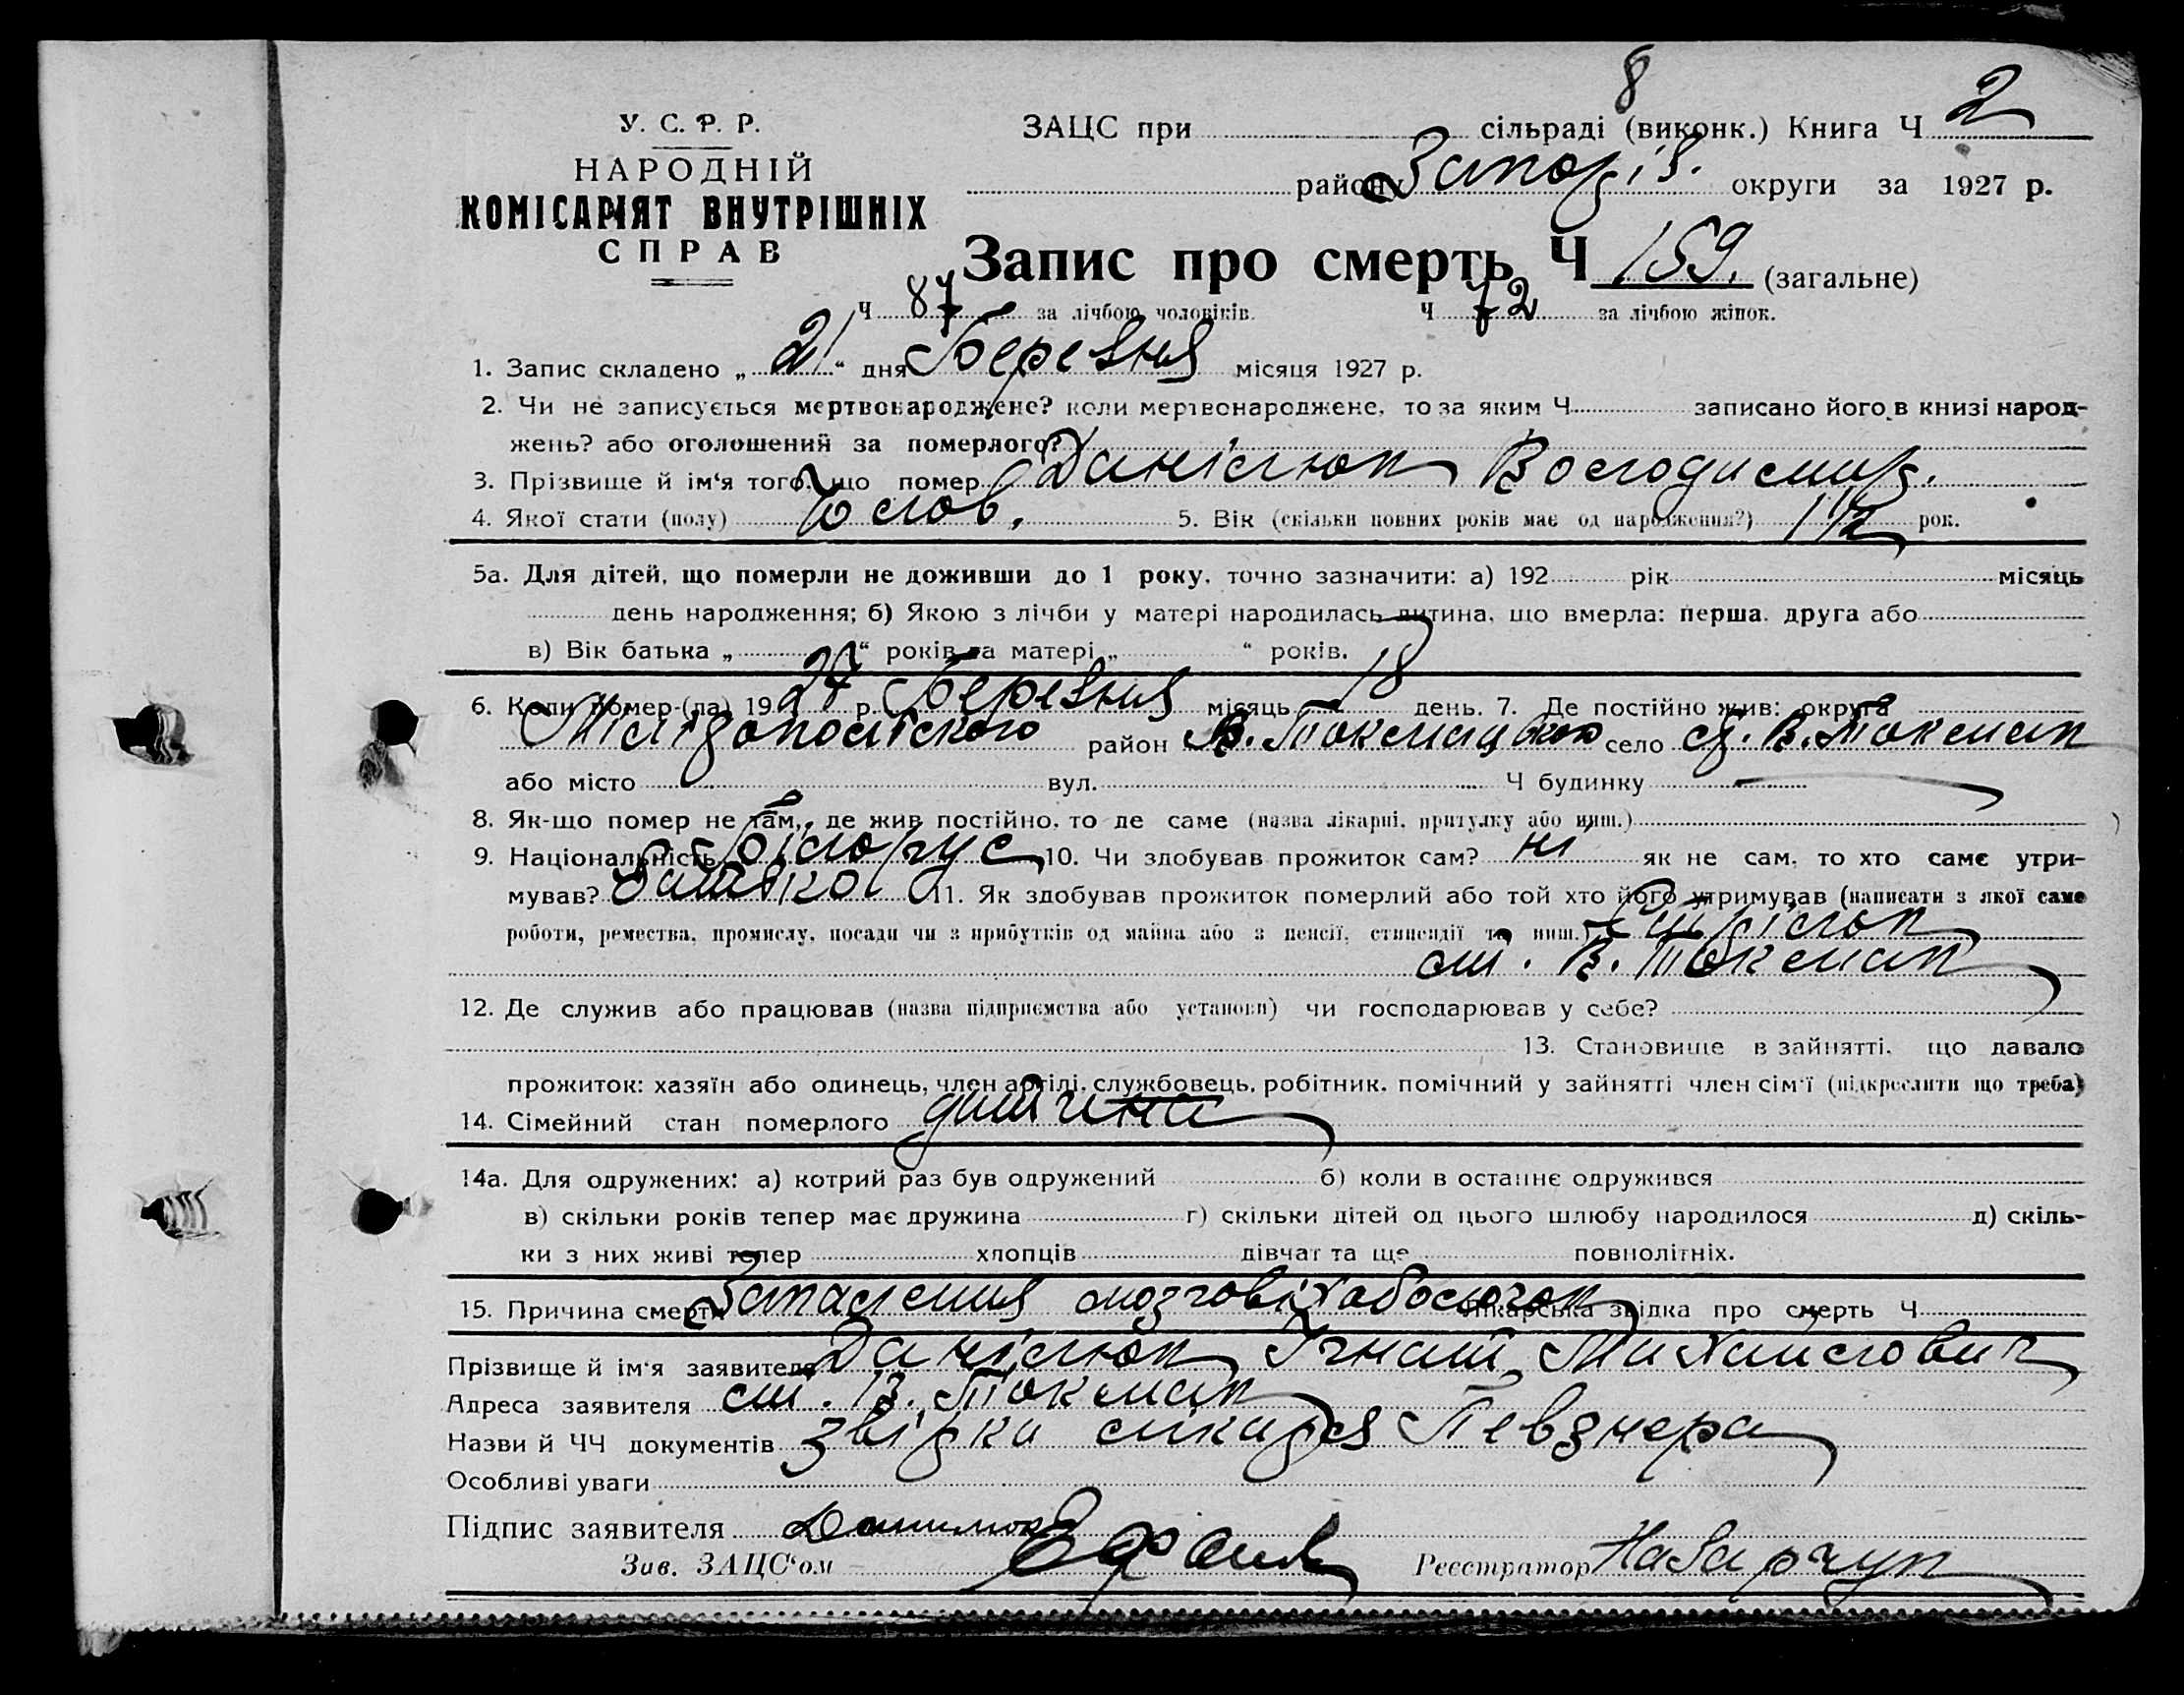 8
У. С. Р. Р.
ЗАЦС при сільраді (виконк.) Книга Ч 2
НАРОДНІЙ
району Запоріз. округи за 1927 р.
КОМІСАРІЯТ ВНУТРІШНІХ
СПРАВ
Запис про смерть Ч 159. (загальне)
Ч 87 за лічбою чоловіків. Ч 72 за лічбою жінок.
1. Запис складено „ 21 “ дня Березня місяця 1927 р.
2. Чи не записується мертвонароджене? коли мертвонароджене, то за яким Ч записано його в книзі народ-
жень? або оголошений за померлого?
3. Прізвище й ім‘я того, що помер Данілюк Володимир.
4. Якої стати (полу) Чолов. 5. Вік (скільки повних років має од народження?) 1 1/2 рок.
5а. Для дітей, що померли не доживши до 1 року, точно зазначити: а) 192 рік місяць
день народження; б) Якою з лічби у матері народилась дитина, що вмерла: перша, друга або
в) Вік батька „ “ років та матері „ “ років.
6. Коли помер-(ла) 1927 р. Березня місяць 18 день. 7. Де постійно жив: округа
Мілітопольского район В. Токмацького село В. Токмак
або місто вул. Ч будинку
8. Як-що помер не там, де жив постійно, то де саме (назва лікарні, притулку або инш.)
9. Національність Білорус 10. Чи здобував прожиток сам? ні як не сам, то хто саме утри-
мував? батько 11. Як здобував прожиток померлий або той хто його утримував (написати з якої саме
роботи, ремества, промислу, посади чи з прибутків од майна або з пенсії, стипендії та инш.) Стрілок
ст. В. Токмак
12. Де служив або працював (назва підприємства або установи) чи господарював у себе?
13. Становище в зайнятті, що давало
прожиток: хазяїн або одинець, член артілі, службовець, робітник, помічний у зайнятті член сім‘ї (підкреслити що треба)
14. Сімейний стан померлого дитина
14а. Для одружених: а) котрий раз був одружений б) коли в останнє одружився
в) скільки років тепер має дружина г) скільки дітей од цього шлюбу народилося д) скіль-
ки з них живі тепер хлопців дівчат та ще повнолітніх.
15. Причина смерти Запалення мозгових оболочок Лікарська звідка про смерть Ч
Прізвище й ім‘я заявителя Данілюк Ігнат Михайлович
Адреса заявителя ст. В. Токмак
Назви й ЧЧ документів звідка лікаря Певзнера
Особливі уваги
Підпис заявителя Данилюк
Зав. ЗАЦС‘ом Реєстратор Назарчук